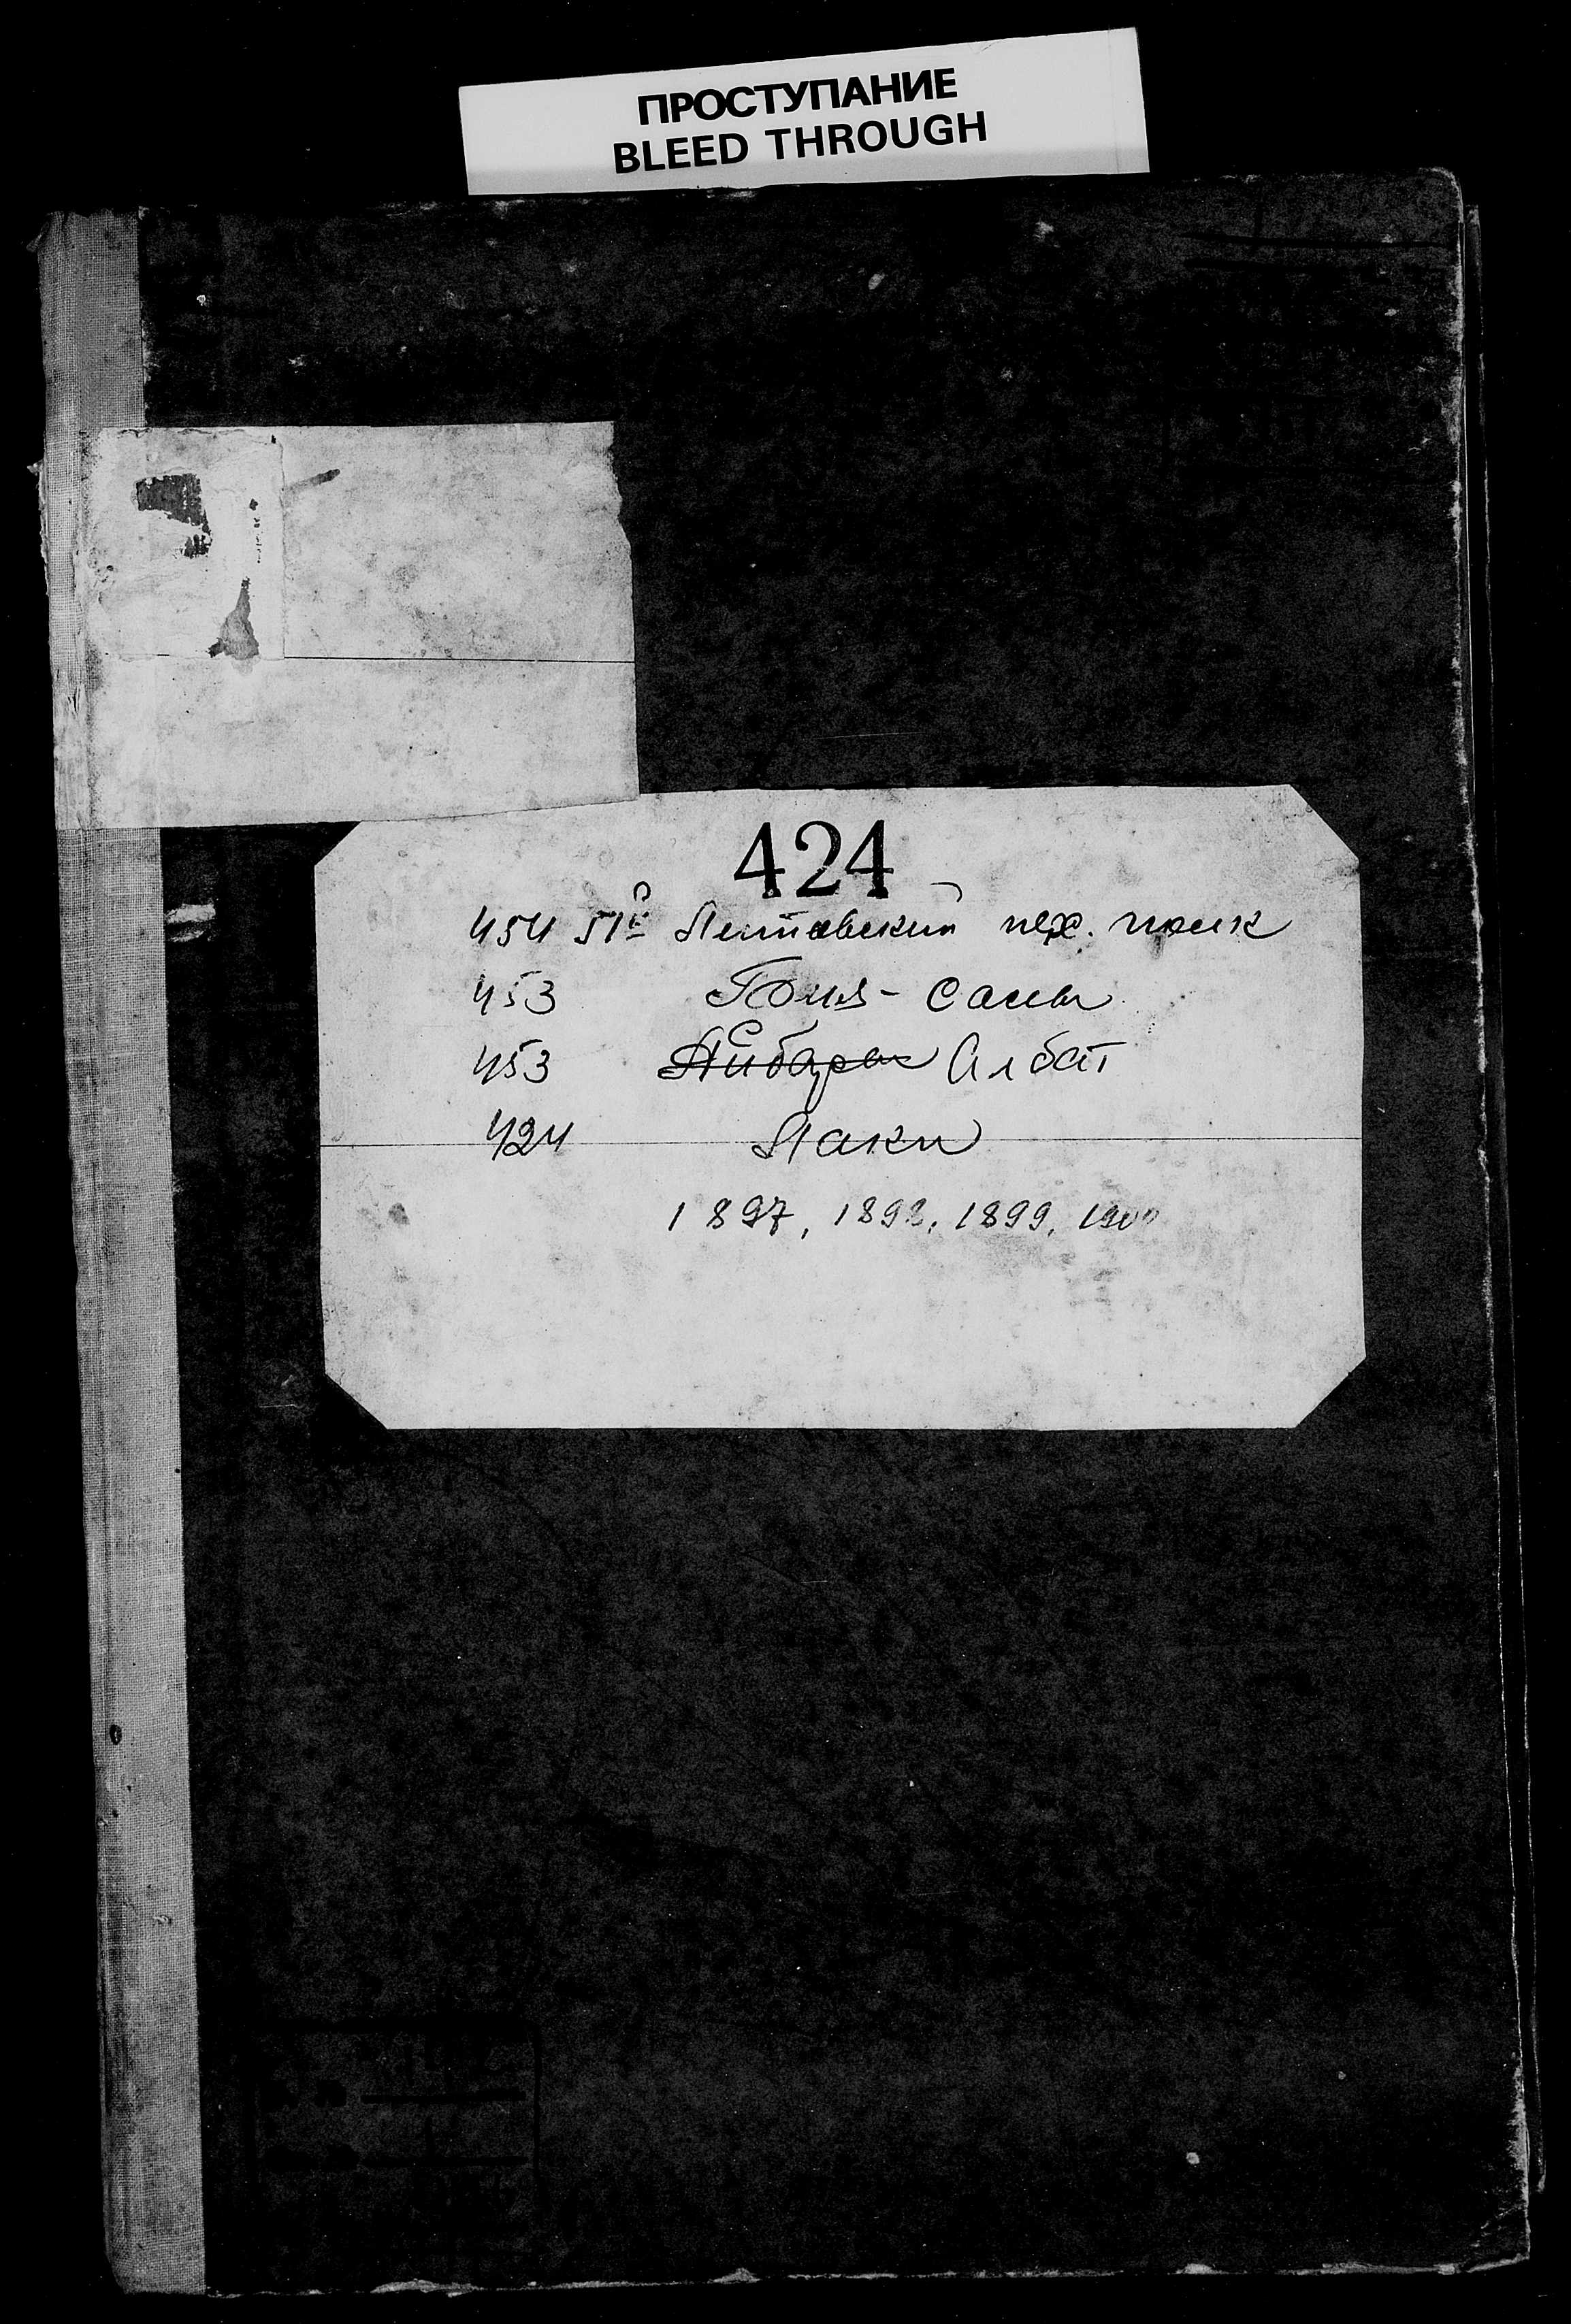 ПРОСТУПАНИЕ
BLEED THROUGH
424
454 51й Литовский пех. полк
453 Биюк-Сала
453 Айбары Албат
424 Лаки
1897, 1898, 1899, 1900